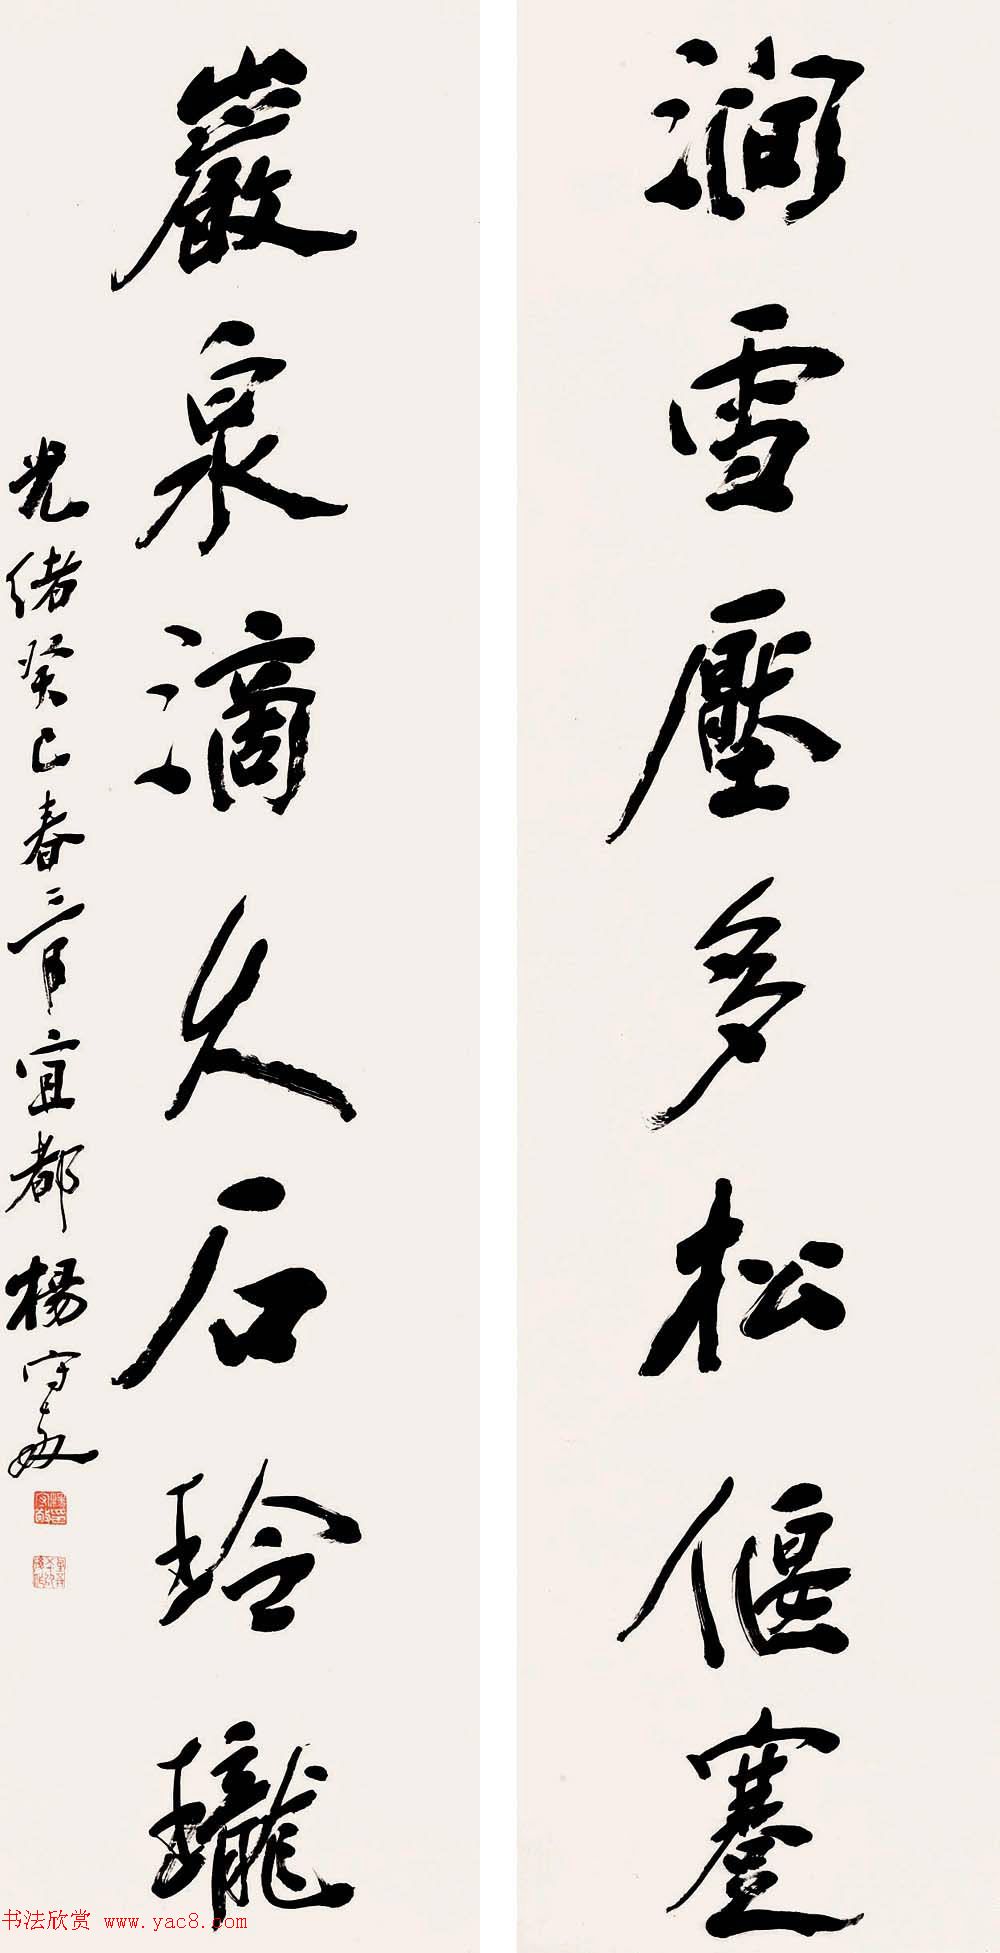 澗雪壓多松偃蹇
巖泉滴久石玲瓏
光緒癸巳春三月宜都楊守敬
书法欣赏 www.yac8.com